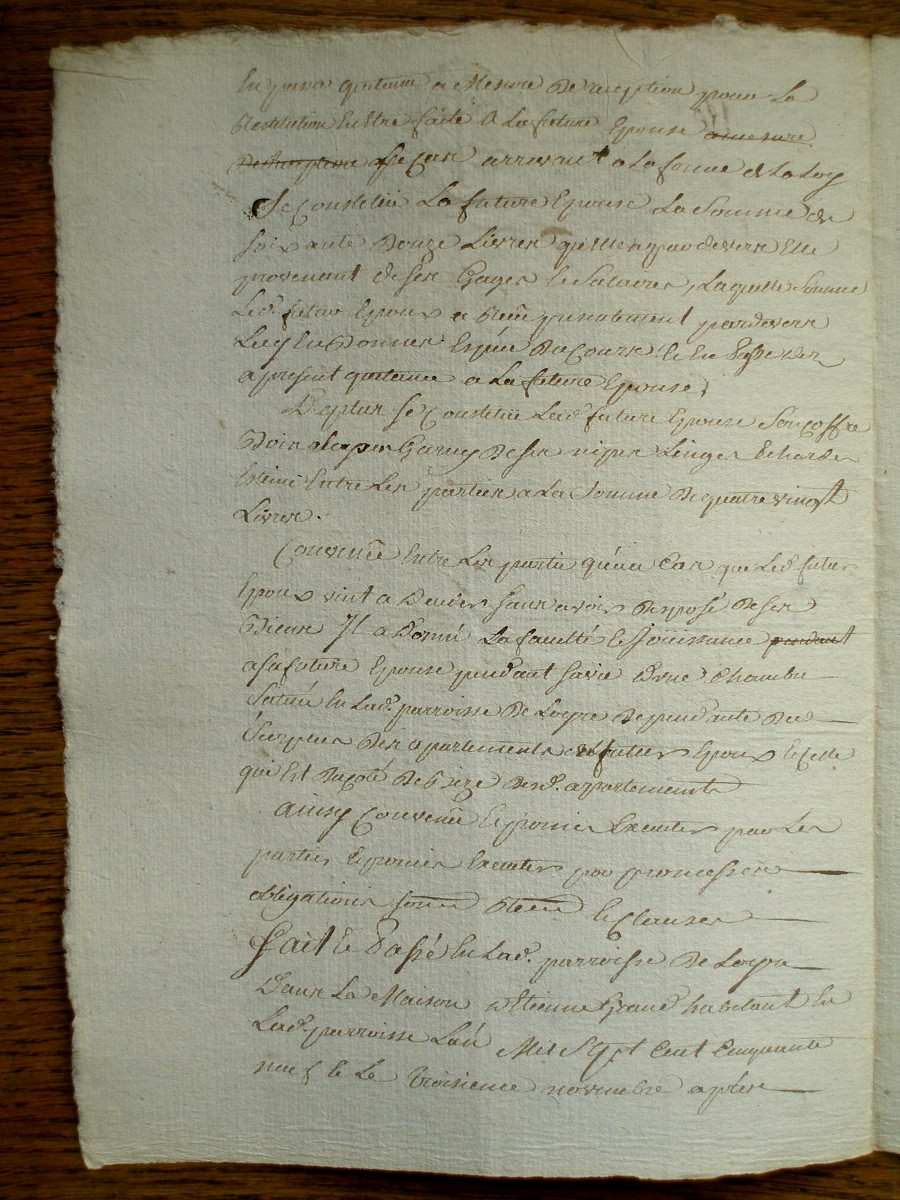 quittance a Mesure De reception pour La
Restitution En Etre faite A La future Epouse a mesure
De Reception Ce Cas arrivant a La forme de La Loy
Se Constitue La future Epouse La Somme de
soixante Douze Livres quelle a par devers Elle
provenant de ses Gages et Salaires, Laquelle Somme
Led. futur Epoux a presentement par devers
Luy En Espece Du Cours et En passe des
a present quittance a La future Epouse,
De plus Se Constitue Lad. future Epouse Son Coffre
Bois Garny De ses nipes Linges et hardes
Estimé Entre Les parties a La Somme De quatre vingt
Livres.
Convenu Entre Les partie qu'au Cas que Led. futur
Epoux vint a Deceder sans avoir Disposé De ses
Biens Il a Donné La faculté et Jouissance pendant
a sa future Epouse pendant sa vie d'une Chambre
Située En Lad. parroisse De Dependante du
Surplus Des apartements dud. futur Epoux et Celle
qui Est Du Coté De bize desd. appartements
ainsy Convenu Et promis Executer par Les
parties Et promis Executer par
obligations et Clauses
fait et Passé En Lad. parroisse De
Dans La Maison d'Etienne habitant En
Lad. parroisse L'an Mil Sept Cent Cinquante
neuf et Le troisieme novembre